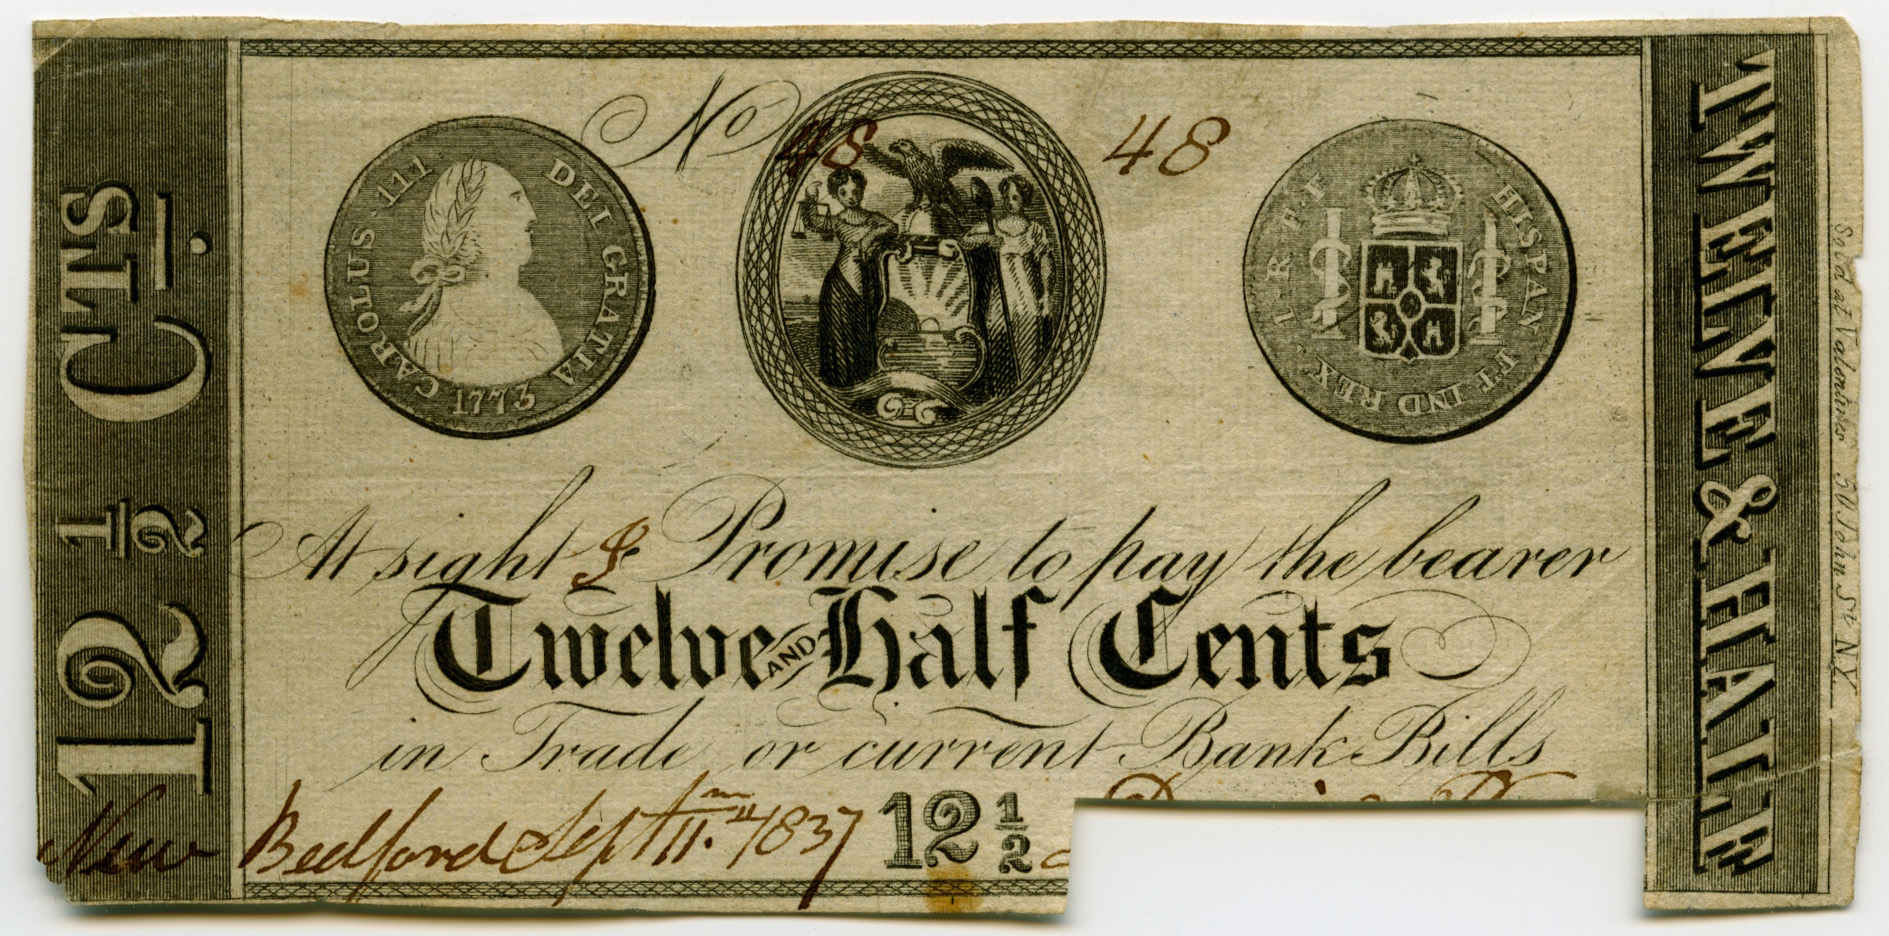 12 1/2 CTS.
CAROLUS·111· DEI GRATIA
1773
No 48 48
HISPAN ET IND REX
TWELVE & HALF
Sold at Valentines 50 John St NY
At sight I Promise to pay the bearer
Twelve AND Half Cents
in Trade or current Bank Bills
New Bedford Sept 11.th 1837 12 1/2